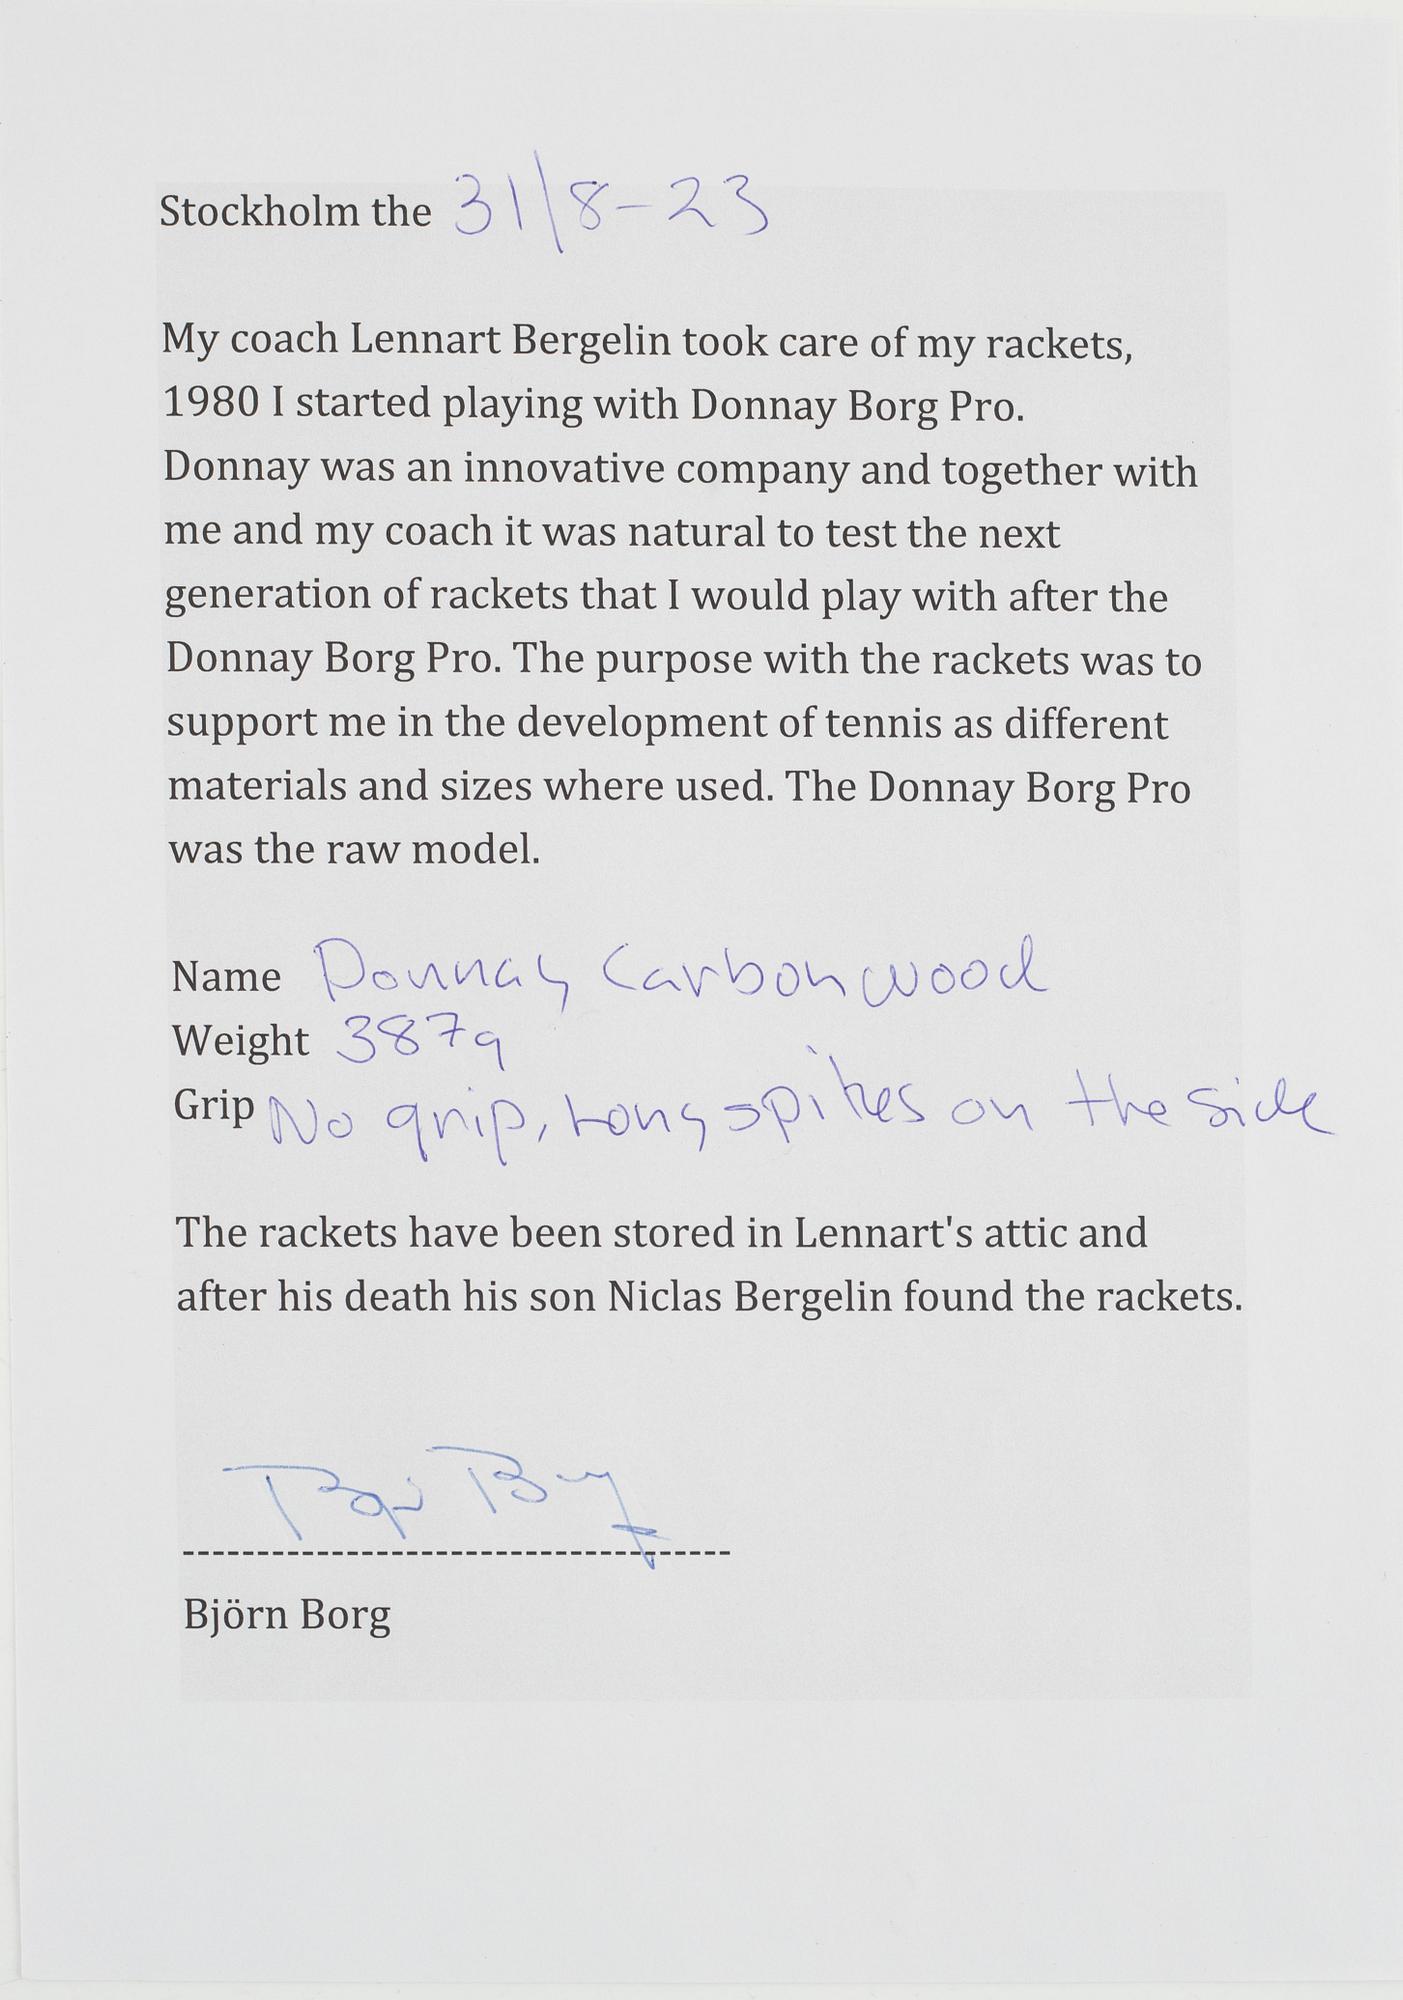 Stockholm the 31/8-23
My coach Lennart Bergelin took care of my rackets,
1980 I started playing with Donnay Borg Pro.
Donnay was an innovative company and together with
me and my coach it was natural to test the next
generation of rackets that I would play with after the
Donnay Borg Pro. The purpose with the rackets was to
support me in the development of tennis as different
materials and sizes where used. The Donnay Borg Pro
was the raw model.
Name Donnay Carbonwood
Weight 387g
Grip No grip, long spikes on the side
The rackets have been stored in Lennart's attic and
after his death his son Niclas Bergelin found the rackets.
Björn Borg
Björn Borg